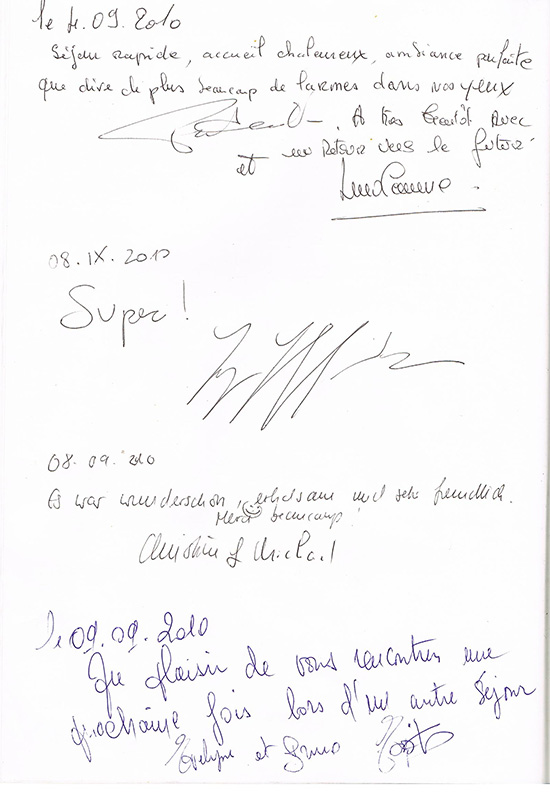 le 4.09.2010
Séjour rapide, accueil chaleureux, ambiance parfaite
que dire de plus beaucoup de larmes dans nos yeux
A très bientôt avec
et un Retour vers le futur
08.IX.2010
Super!
08.09.2010
Es war wunderschön, erholsam und sehr freundlich.
Merci beaucoup!
Christine & Michael
le 09.09.2010
Au plaisir de vous rencontrer une
prochaine fois lors d'un autre séjour
Evelyne et Bruno